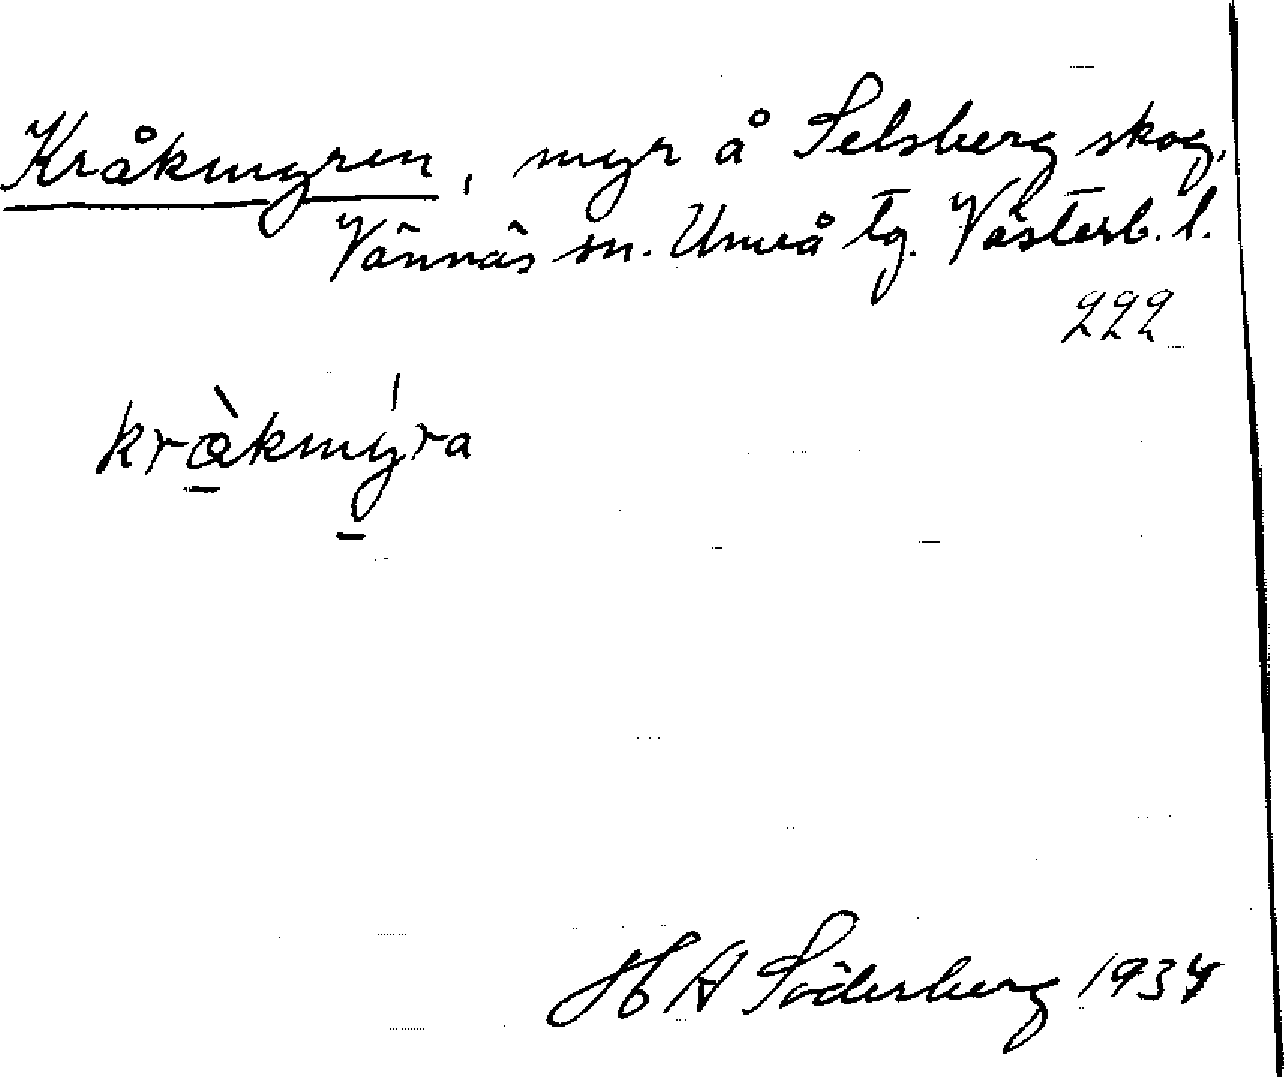 Kråkmyren, myr å Selsberg skog,
Vännäs sn. Umeå tg. Västerb. l.
222
kràkmýra
H A Söderberg 1934